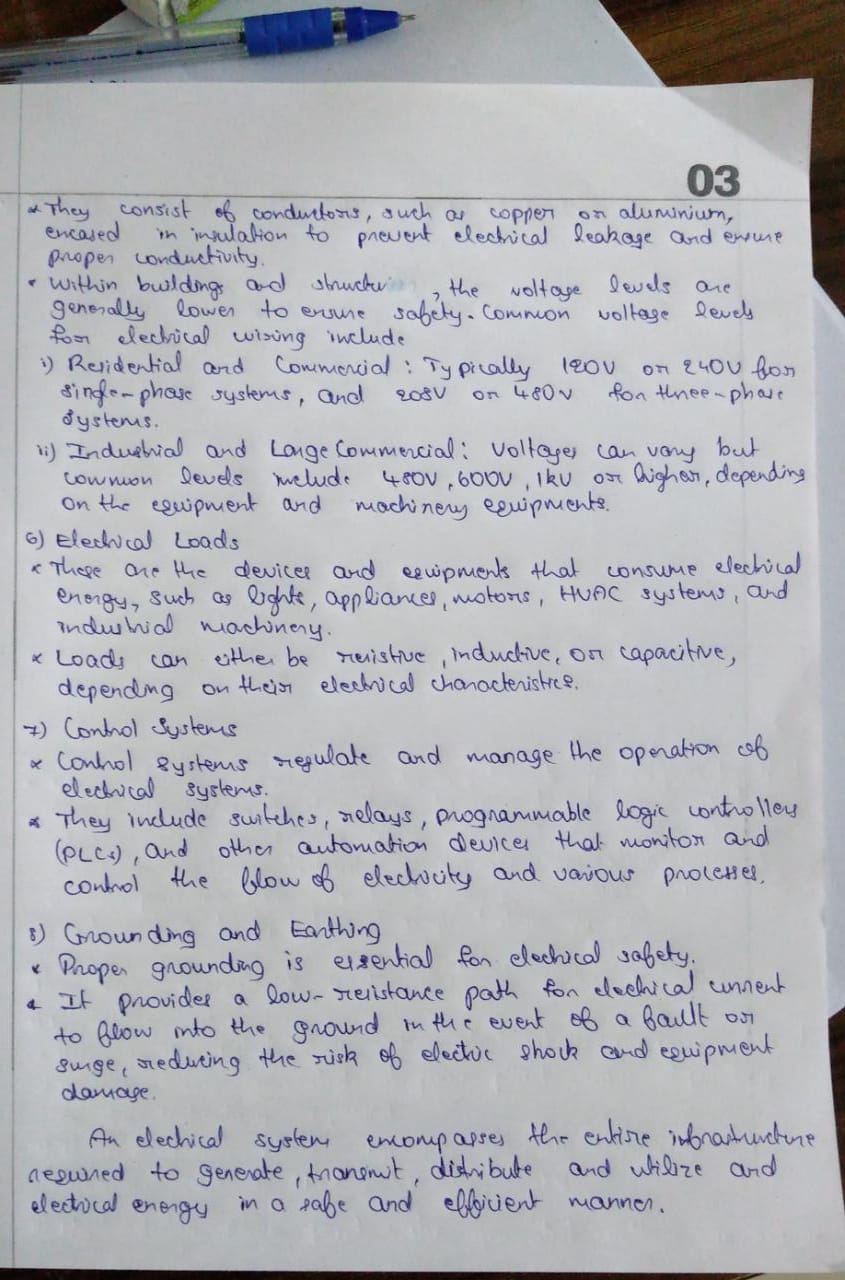 03
* They consist of conductors, such as copper or aluminium,
encased in insulation to prevent electrical leakage and ensure
proper conductivity.
* Within buildings and structures, the voltage levels are
generally lower to ensure safety. Common voltage levels
for electrical wiring include
i) Residential and Commercial : Typically 120V or 240V for
single-phase systems, and 208V or 480V for three-phase
systems.
ii) Industrial and Large Commercial : Voltages can vary but
common levels include 480V, 600V, 1kV or higher, depending
on the equipment and machinery equipments.
6) Electrical Loads
* These are the devices and equipments that consume electrical
energy, such as lights, appliances, motors, HVAC systems, and
industrial machinery.
* Loads can either be resistive, inductive, or capacitive,
depending on their electrical characteristics.
7) Control Systems
* Control systems regulate and manage the operation of
electrical systems.
* They include switches, relays, programmable logic controllers
(PLCs), and other automation devices that monitor and
control the flow of electricity and various processes.
8) Grounding and Earthing
* Proper grounding is essential for electrical safety.
* It provides a low-resistance path for electrical current
to flow into the ground in the event of a fault or
surge, reducing the risk of electric shock and equipment
damage.
An electrical system encompasses the entire infrastructure
required to generate, transmit, distribute and utilize and
electrical energy in a safe and efficient manner.